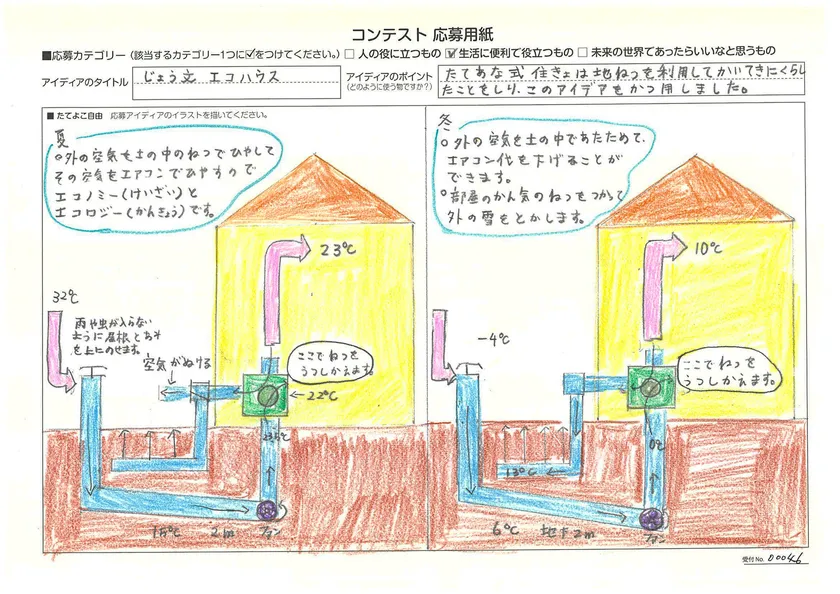 コンテスト 応募用紙
■応募カテゴリー（該当するカテゴリー1つに☑をつけてください。）□ 人の役に立つもの ☑ 生活に便利で役立つもの □ 未来の世界であったらいいなと思うもの
アイディアのタイトル
じょう文 エコハウス
アイディアのポイント
（どのように使う物ですか？）
たてあな式 住きょは地ねつを利用してかいてきにくらし
たことをしり、このアイデアをかつ用しました。
■ たてよこ自由 応募アイディアのイラストを描いてください。
夏
○外の空気を土の中のねつでひやして
その空気をエアコンでひやすので
エコノミー(けいざい)と
エコロジー(かんきょう)です。
23℃
32℃
雨や虫が入らない
ように屋根とあみ
を上にのせます。
空気がぬける
ここでねつを
うつしかえます。
←22℃
15℃
2m
ファン
冬
○外の空気を土の中であたためて、
エアコン代を下げることが
できます。
○部屋のかん気のねつをつかって
外の雪をとかします。
10℃
-4℃
ここでねつを
うつしかえます。
0℃
6℃
地下2m
ファン
受付No. 00046